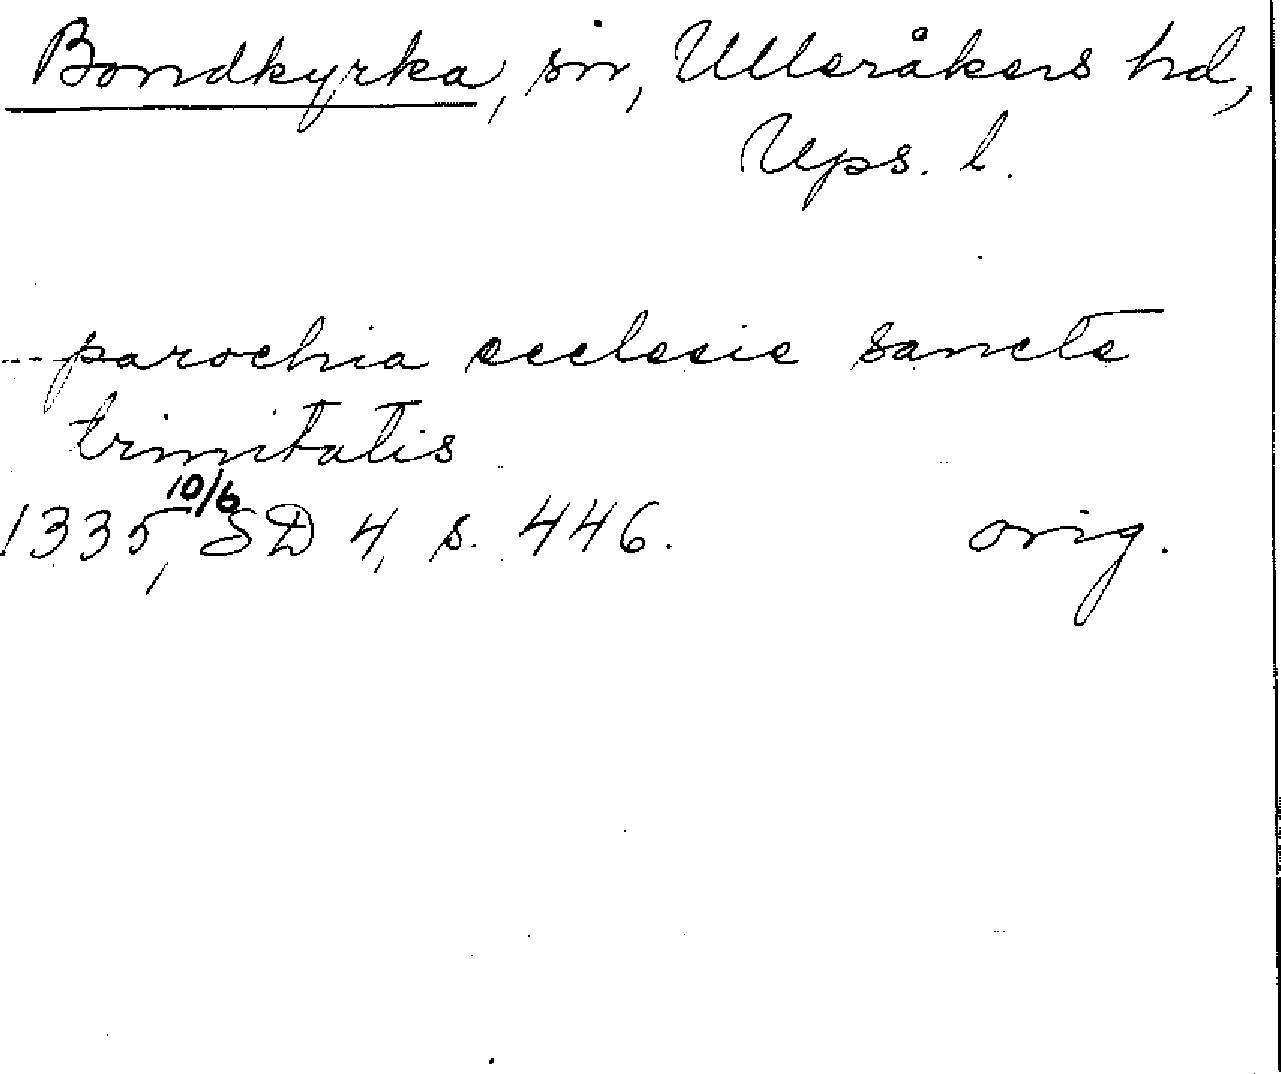 Bondkyrka, sn, Ulleråkers hd,
Ups. l.
-- parochia ecclesie sancte
trinitatis
1335 10/6, SD 4, s. 446. orig.